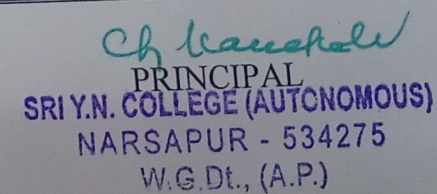 PRINCIPAL
SRI Y.N. COLLEGE (AUTONOMOUS)
NARSAPUR - 534275
W.G.Dt., (A.P.)